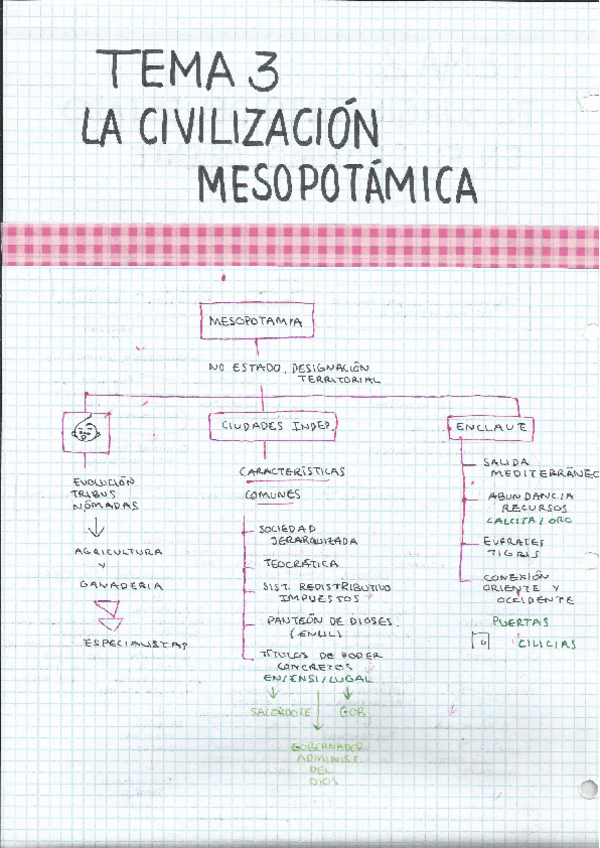 TEMA 3
LA CIVILIZACIÓN
MESOPOTÁMICA
MESOPOTAMIA
NO ESTADO, DESIGNACIÓN
TERRITORIAL
EVOLUCIÓN
TRIBUS
NÓMADAS
AGRICULTURA
Y
GANADERIA
ESPECIALISTAS
CIUDADES INDEP.
CARACTERÍSTICAS
COMUNES
SOCIEDAD
JERARQUIZADA
TEOCRÁTICA
SIST. REDISTRIBUTIVO
IMPUESTOS
PANTEÓN DE DIOSES.
(ENLIL)
TÍTULOS DE PODER
CONCRETOS
EN/ENSI/LUGAL
SACERDOTE
GOB
GOBERNADOR
ADMINIST.
DEL
DIOS
ENCLAVE
SALIDA
MEDITERRÁNEO
ABUNDANCIA
RECURSOS
CALCITA/ORO
EUFRATES
TIGRIS
CONEXIÓN
ORIENTE Y
OCCIDENTE
PUERTAS
CILICIAS